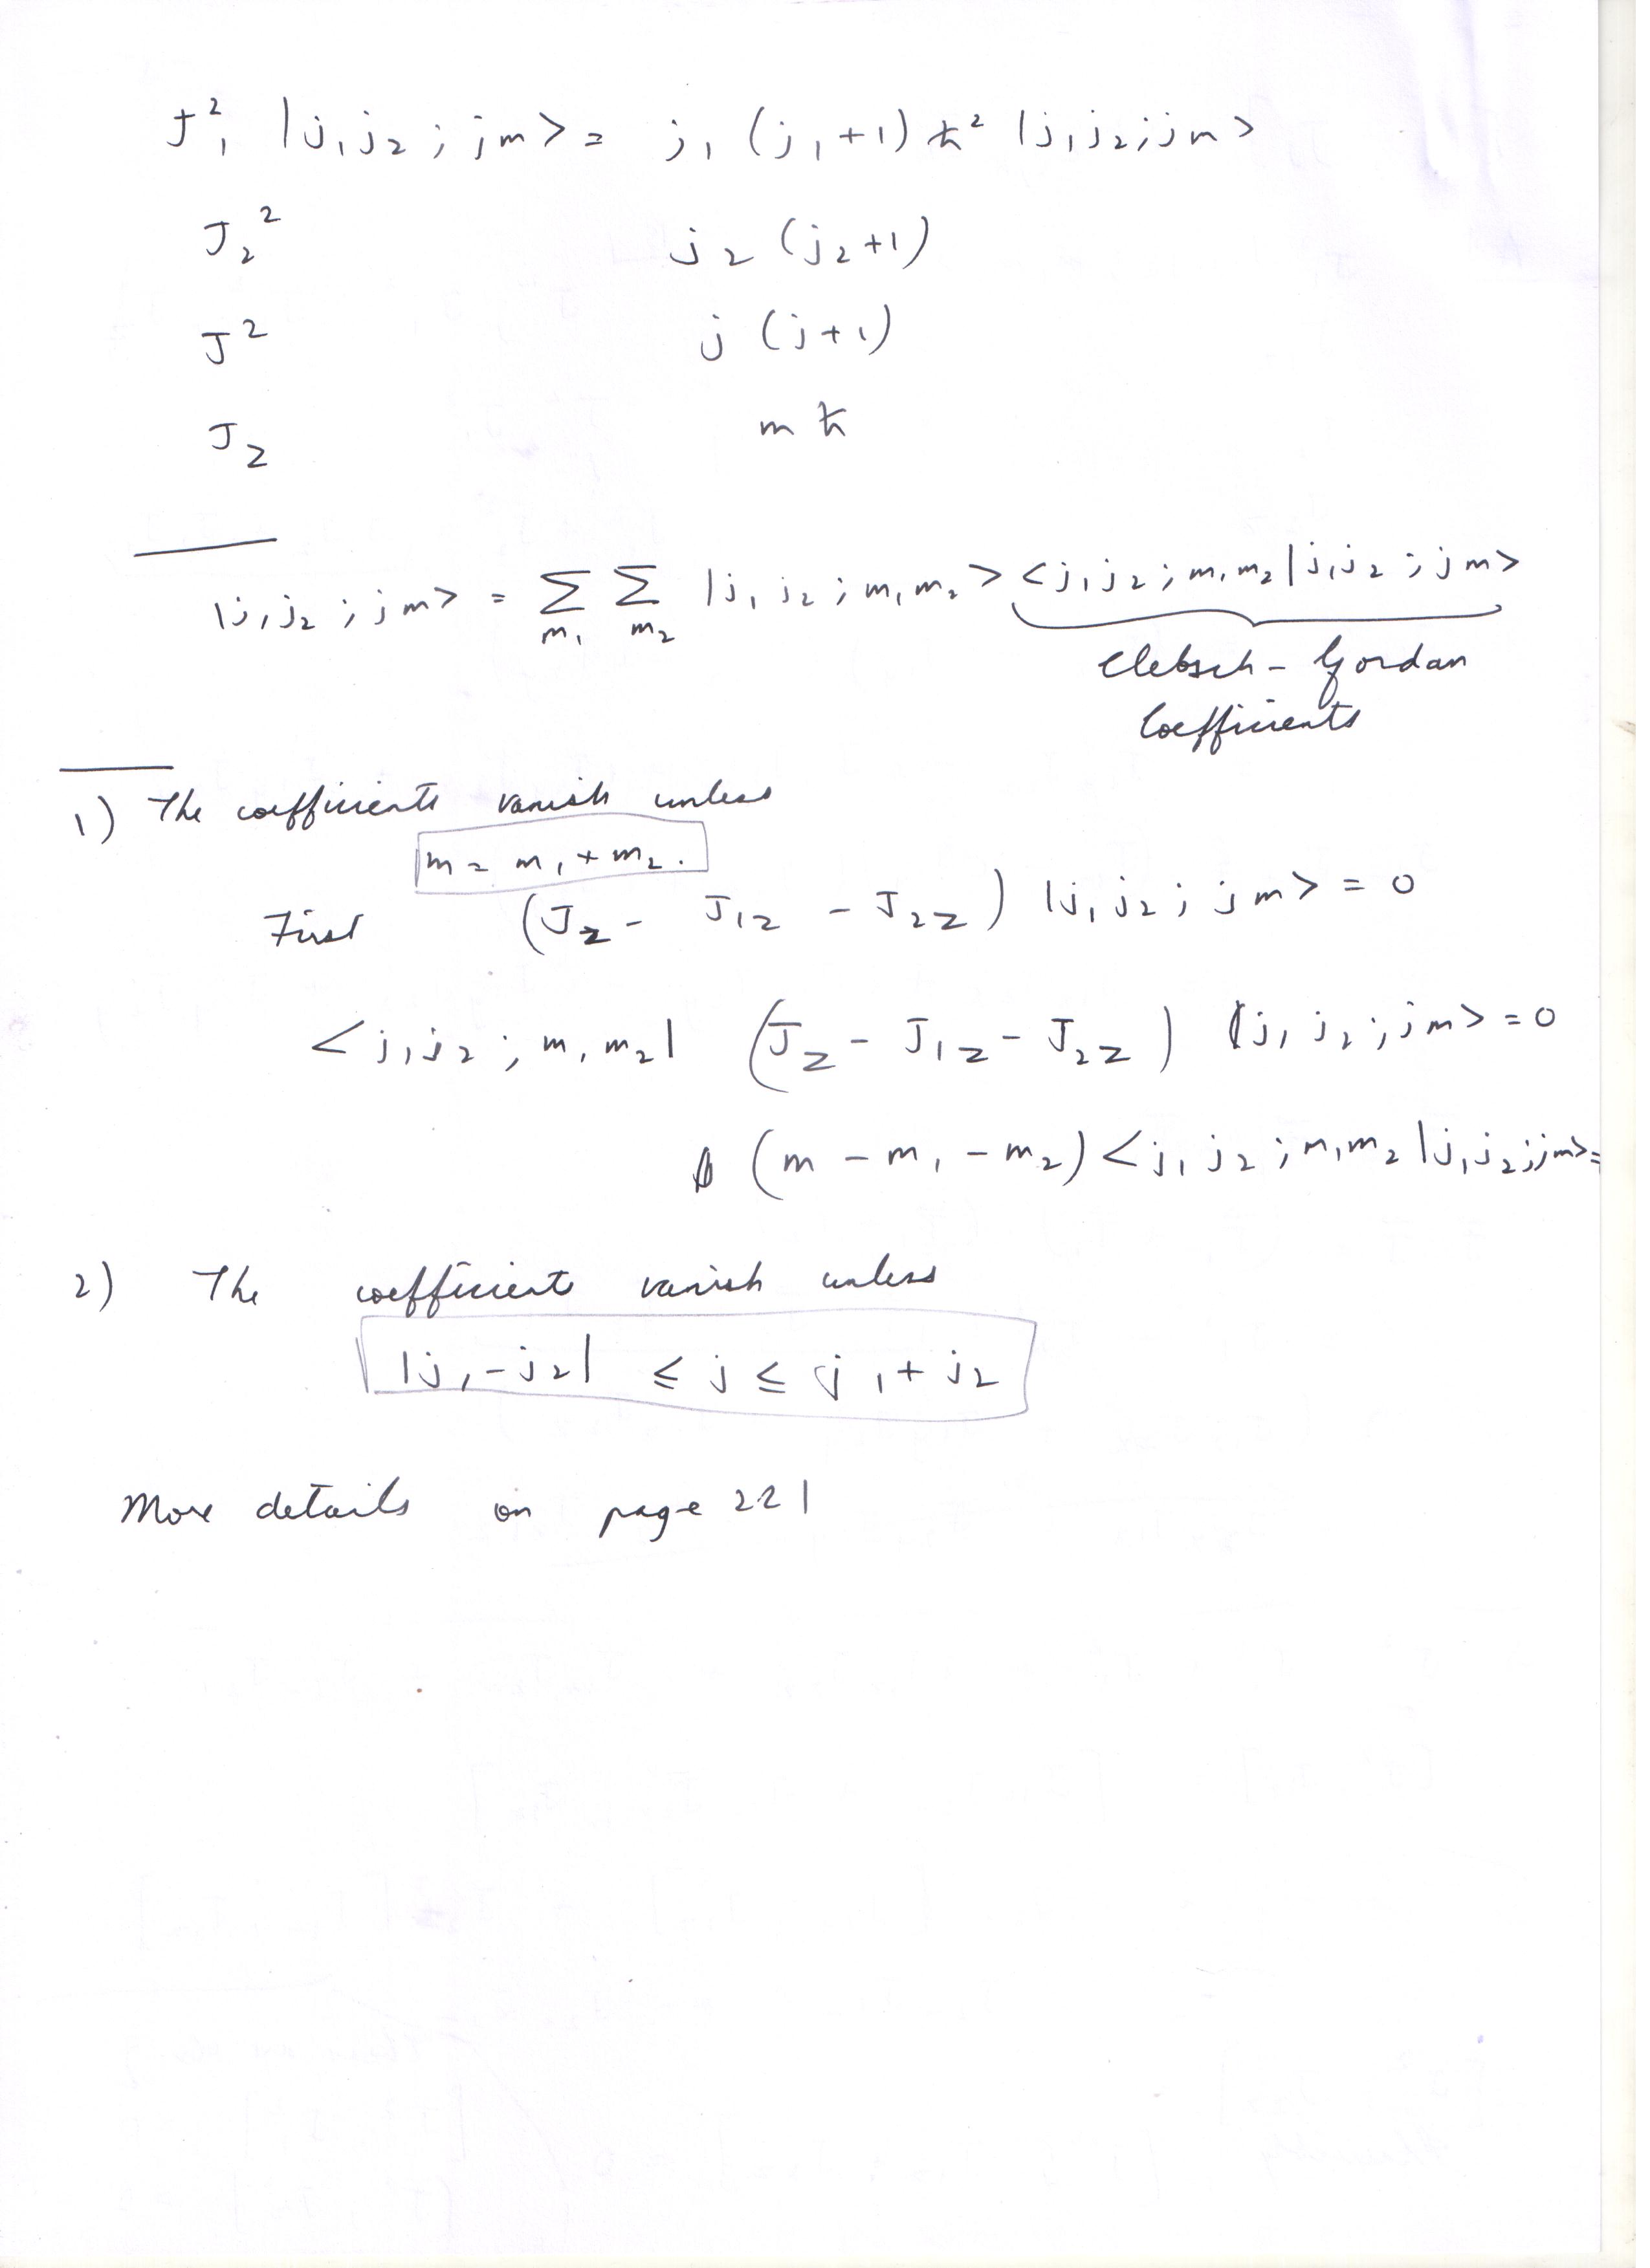 J₁² |j₁j₂ ; jm> = j₁ (j₁+1) ħ² |j₁j₂;jm>
J₂² j₂ (j₂+1)
J² j (j+1)
J_z m ħ
|j₁j₂ ; jm> = Σ_{m₁} Σ_{m₂} |j₁ j₂ ; m₁m₂> <j₁j₂ ; m₁m₂|j₁j₂ ; jm>
Clebsch-Gordan
Coefficients
1) The coefficients vanish unless
m = m₁ + m₂.
First (J_z - J₁z - J₂z) |j₁j₂ ; jm> = 0
<j₁j₂ ; m₁m₂| (J_z - J₁z - J₂z) |j₁ j₂ ; jm> = 0
(m - m₁ - m₂) <j₁ j₂ ; m₁m₂ |j₁j₂;jm> =
2) The coefficients vanish unless
|j₁-j₂| ≤ j ≤ j₁ + j₂
More details on page 221